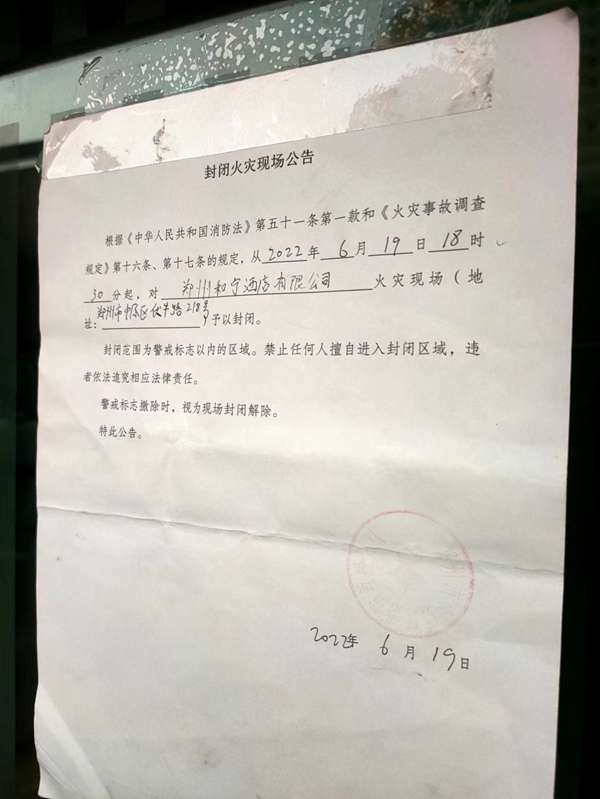 封闭火灾现场公告
根据《中华人民共和国消防法》第五十一条第一款和《火灾事故调查
规定》第十六条、第十七条的规定，从2022年6月19日18时
30分起，对郑州和宁酒店有限公司火灾现场（地
址：郑州市中原区伏牛路218号）予以封闭。
封闭范围为警戒标志以内的区域。禁止任何人擅自进入封闭区域，违
者依法追究相应法律责任。
警戒标志撤除时，视为现场封闭解除。
特此公告。
2022年6月19日